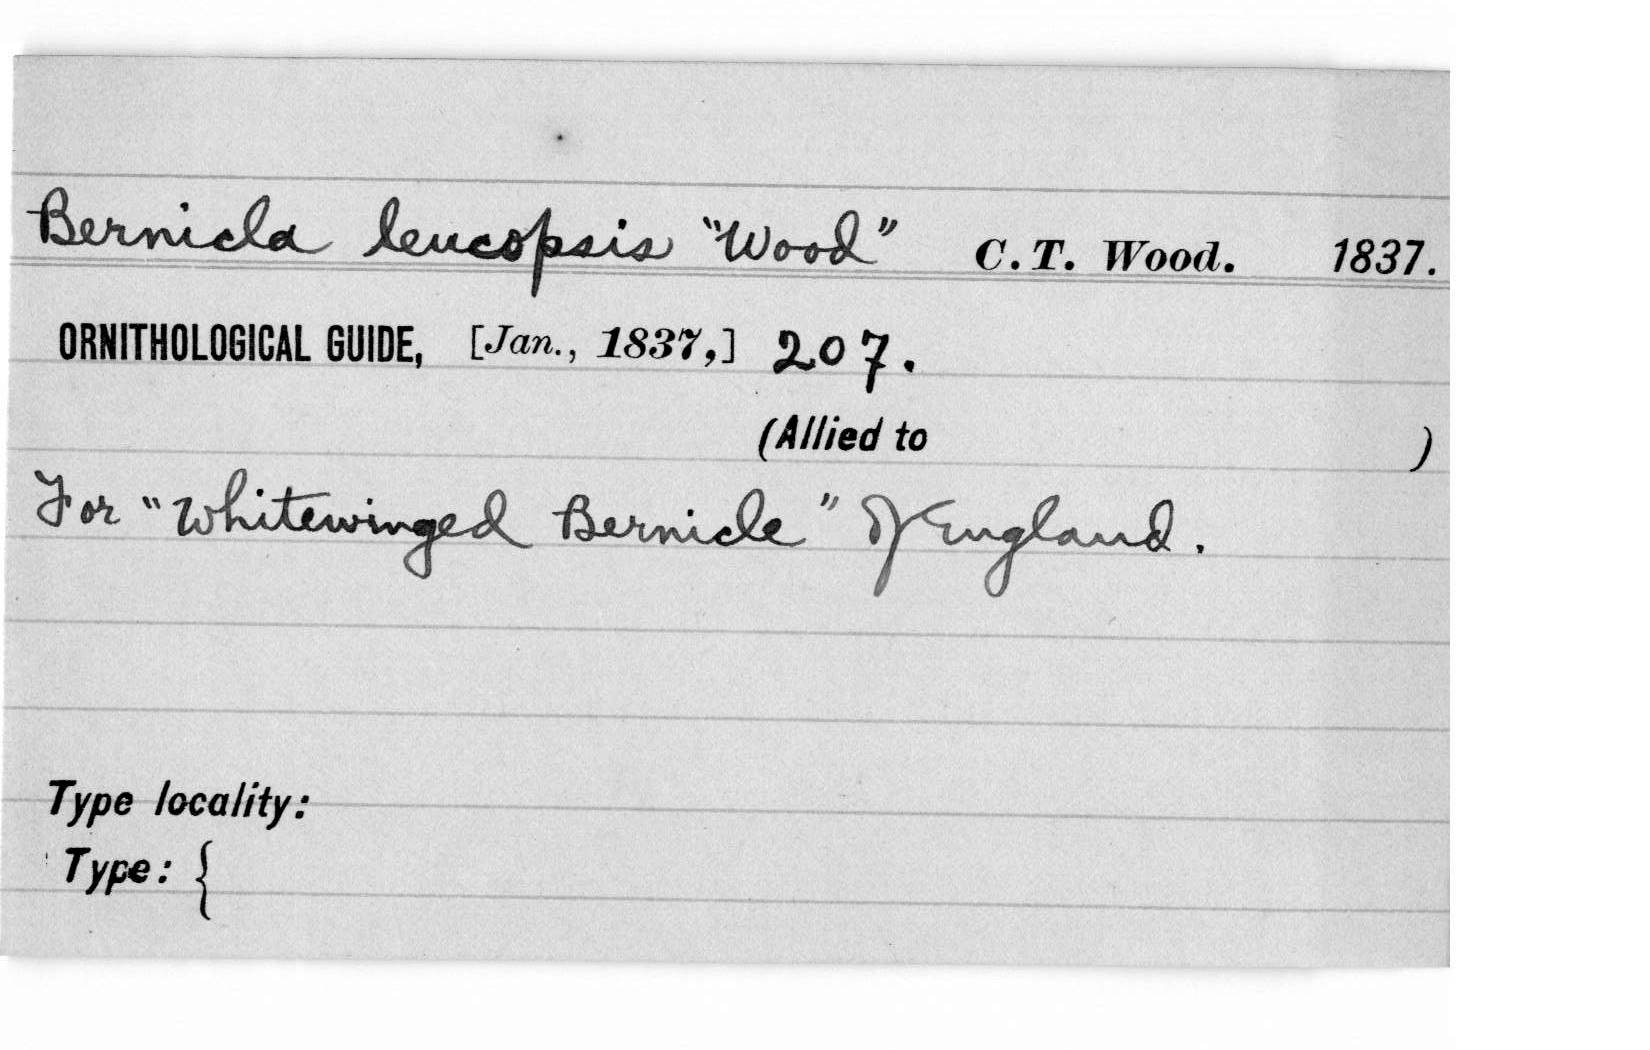 Bernicla leucopsis "Wood" C. T. Wood. 1837.
ORNITHOLOGICAL GUIDE, [Jan., 1837,] 207.
(Allied to )
For "Whitewinged Bernicle" of England.
Type locality:
Type: {